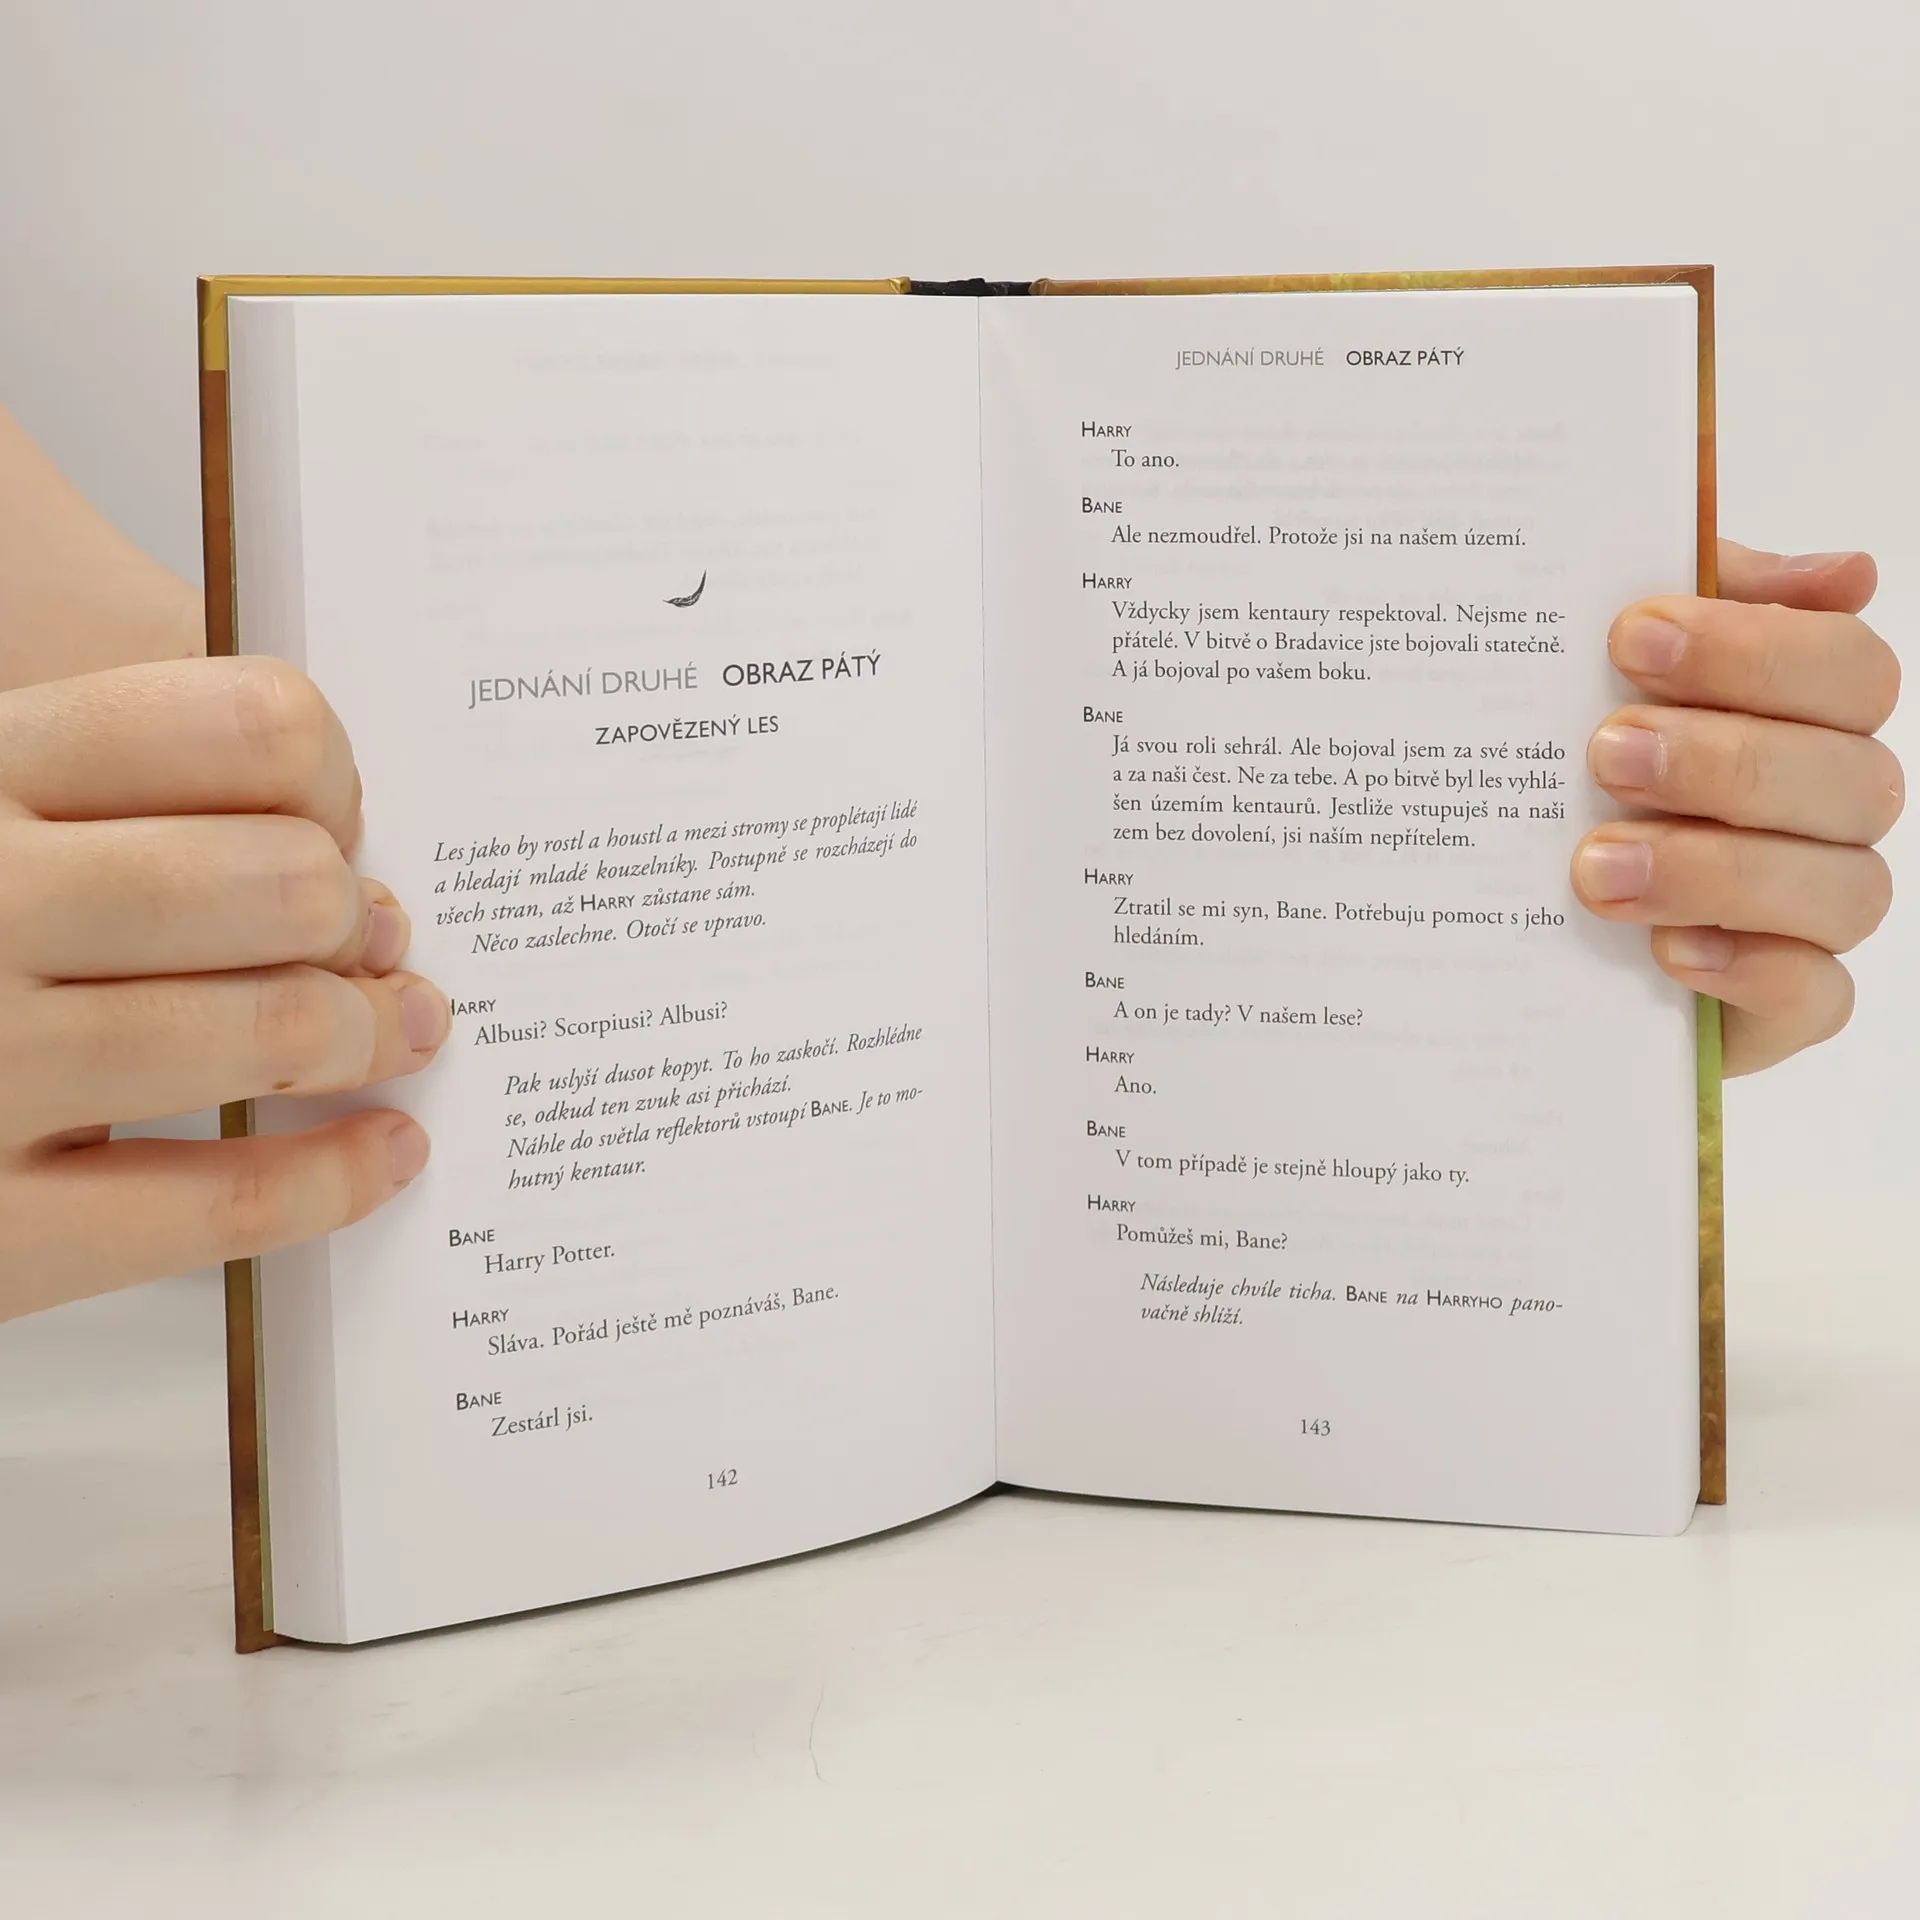 JEDNÁNÍ DRUHÉ OBRAZ PÁTÝ
ZAPOVĚZENÝ LES
Les jako by rostl a houstl a mezi stromy se proplétají lidé
a hledají mladé kouzelníky. Postupně se rozcházejí do
všech stran, až HARRY zůstane sám.
Něco zaslechne. Otočí se vpravo.
HARRY
Albusi? Scorpiusi? Albusi?
Pak uslyší dusot kopyt. To ho zaskočí. Rozhlédne
se, odkud ten zvuk asi přichází.
Náhle do světla reflektorů vstoupí BANE. Je to mo-
hutný kentaur.
BANE
Harry Potter.
HARRY
Sláva. Pořád ještě mě poznáváš, Bane.
BANE
Zestárl jsi.
142
JEDNÁNÍ DRUHÉ OBRAZ PÁTÝ
HARRY
To ano.
BANE
Ale nezmoudřel. Protože jsi na našem území.
HARRY
Vždycky jsem kentaury respektoval. Nejsme ne-
přátelé. V bitvě o Bradavice jste bojovali statečně.
A já bojoval po vašem boku.
BANE
Já svou roli sehrál. Ale bojoval jsem za své stádo
a za naši čest. Ne za tebe. A po bitvě byl les vyhlá-
šen územím kentaurů. Jestliže vstupuješ na naši
zem bez dovolení, jsi naším nepřítelem.
HARRY
Ztratil se mi syn, Bane. Potřebuju pomoct s jeho
hledáním.
BANE
A on je tady? V našem lese?
HARRY
Ano.
BANE
V tom případě je stejně hloupý jako ty.
HARRY
Pomůžeš mi, Bane?
Následuje chvíle ticha. BANE na HARRYHO pano-
vačně shlíží.
143